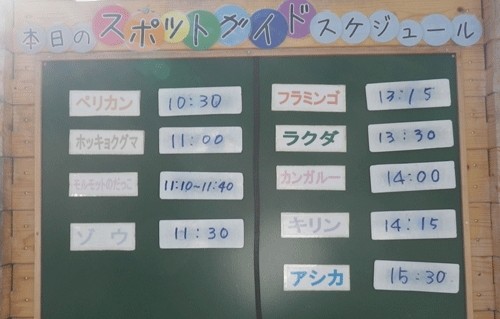 本日のスポットガイドスケジュール
ペリカン 10:30
ホッキョクグマ 11:00
モルモットのだっこ 11:10~11:40
ゾウ 11:30
フラミンゴ 13:15
ラクダ 13:30
カンガルー 14:00
キリン 14:15
アシカ 15:30